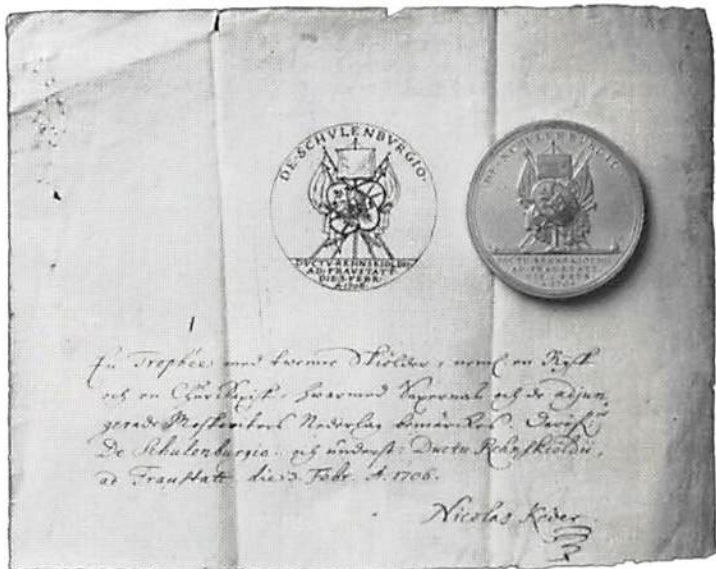 DE·SCHVLENBVRGIO·
DUCTU·REHNSKIOLDII
AD·FRAVSTATT
DIE 3·FEBR·
A·1706·
DE·SCHVLENBVRGIO·
DUCTU·REHNSKIOLDII
AD·FRAVSTATT
DIE 3·FEBR·
A·1706·
En Trophée med twenne Skiöldar, neml: en Rysk
och en ChurSaxisk, hwarmed Saxernas och de adjun,
gerade Moskoviters Nederlag bemärckes. Daröf:
De Schulenburgio. och underst: Ductu Rehnskioldii,
ad Fraustatt die 3. Febr. A. 1706.
Nicolas Keder